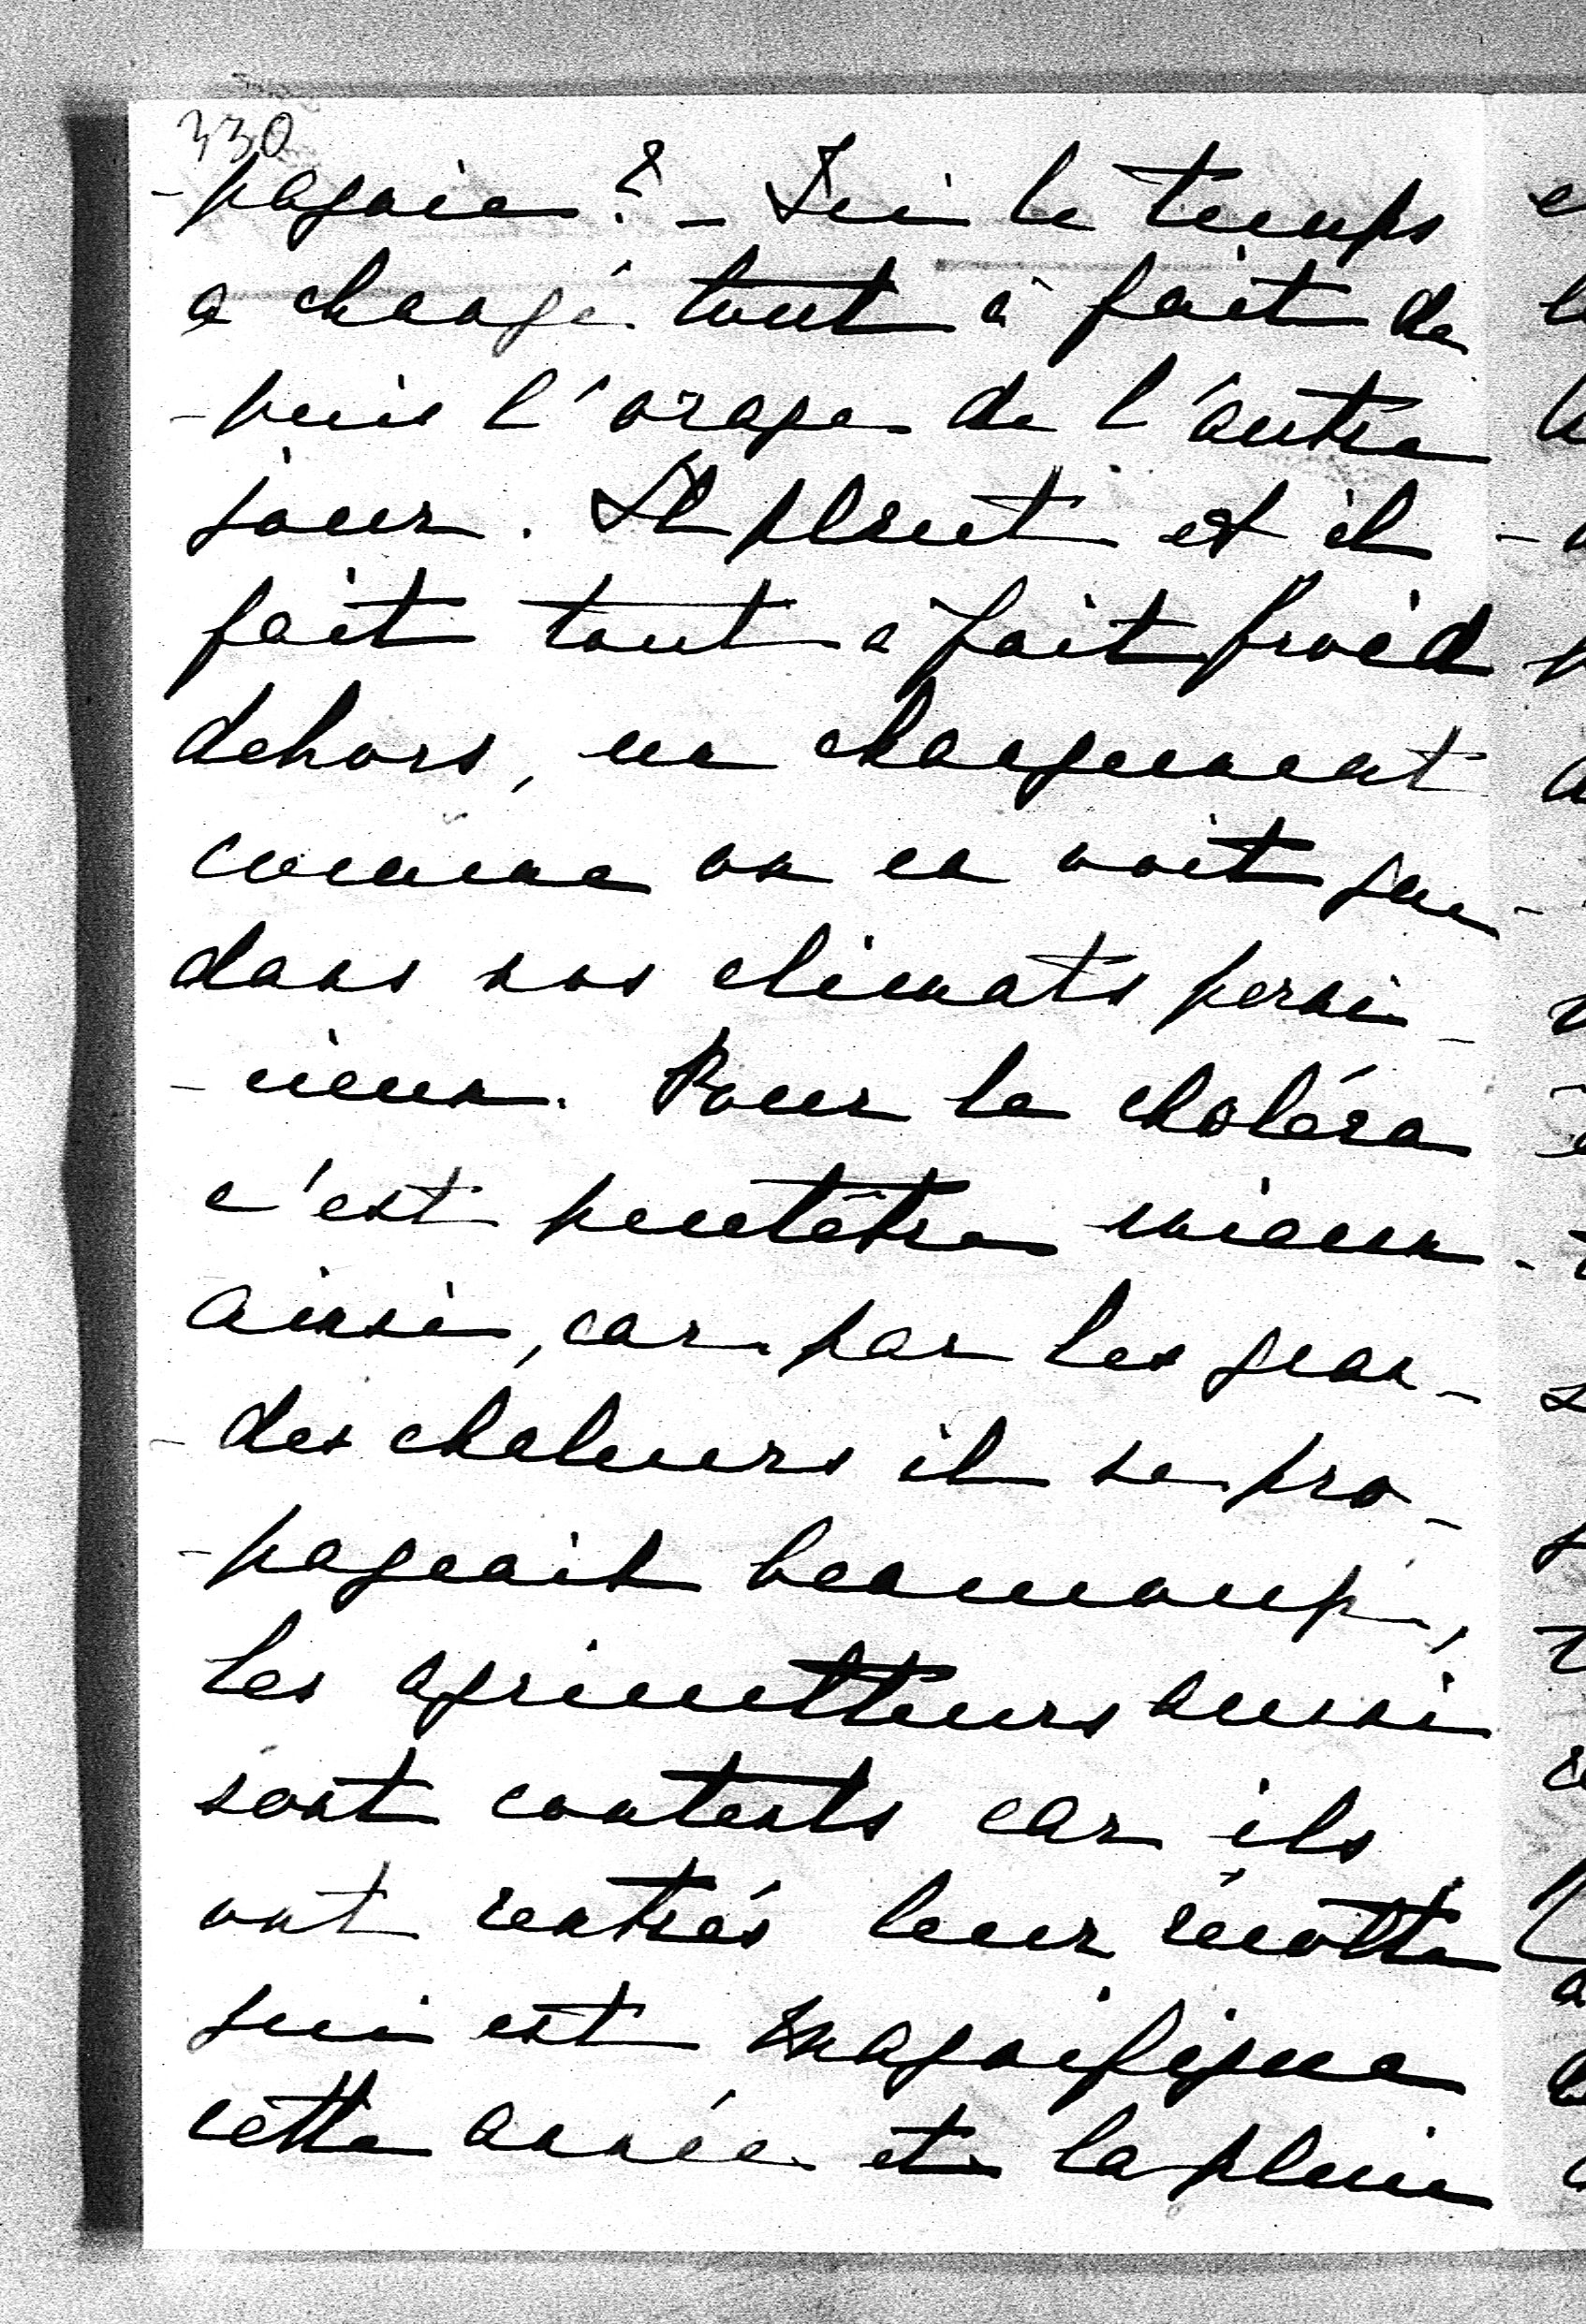 330
-pagnie? - Ici le temps
a changé tout à fait de
-puis l'orage de l'autre
jour. Il pleut et il
fait tout à fait froid
dehors, un changement
comme on en voit que
dans nos climats perni-
-cieux. Pour le choléra
c'est peutêtre mieux
ainsi, car par les gran-
-des chaleurs il se pro-
-pageait beaucoup,
les agriculteurs aussi
sont contents car ils
ont rentrés leur récolte
qui est magnifique
cette année et la pluie